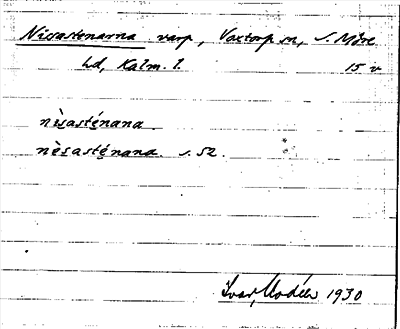 Nissastenarna varp, Voxtorp sn, S. Möre
hd, Kalm. l. 15 v
nìsasténana.
nèsasténana. s. 52.
Ivar Modéer 1930